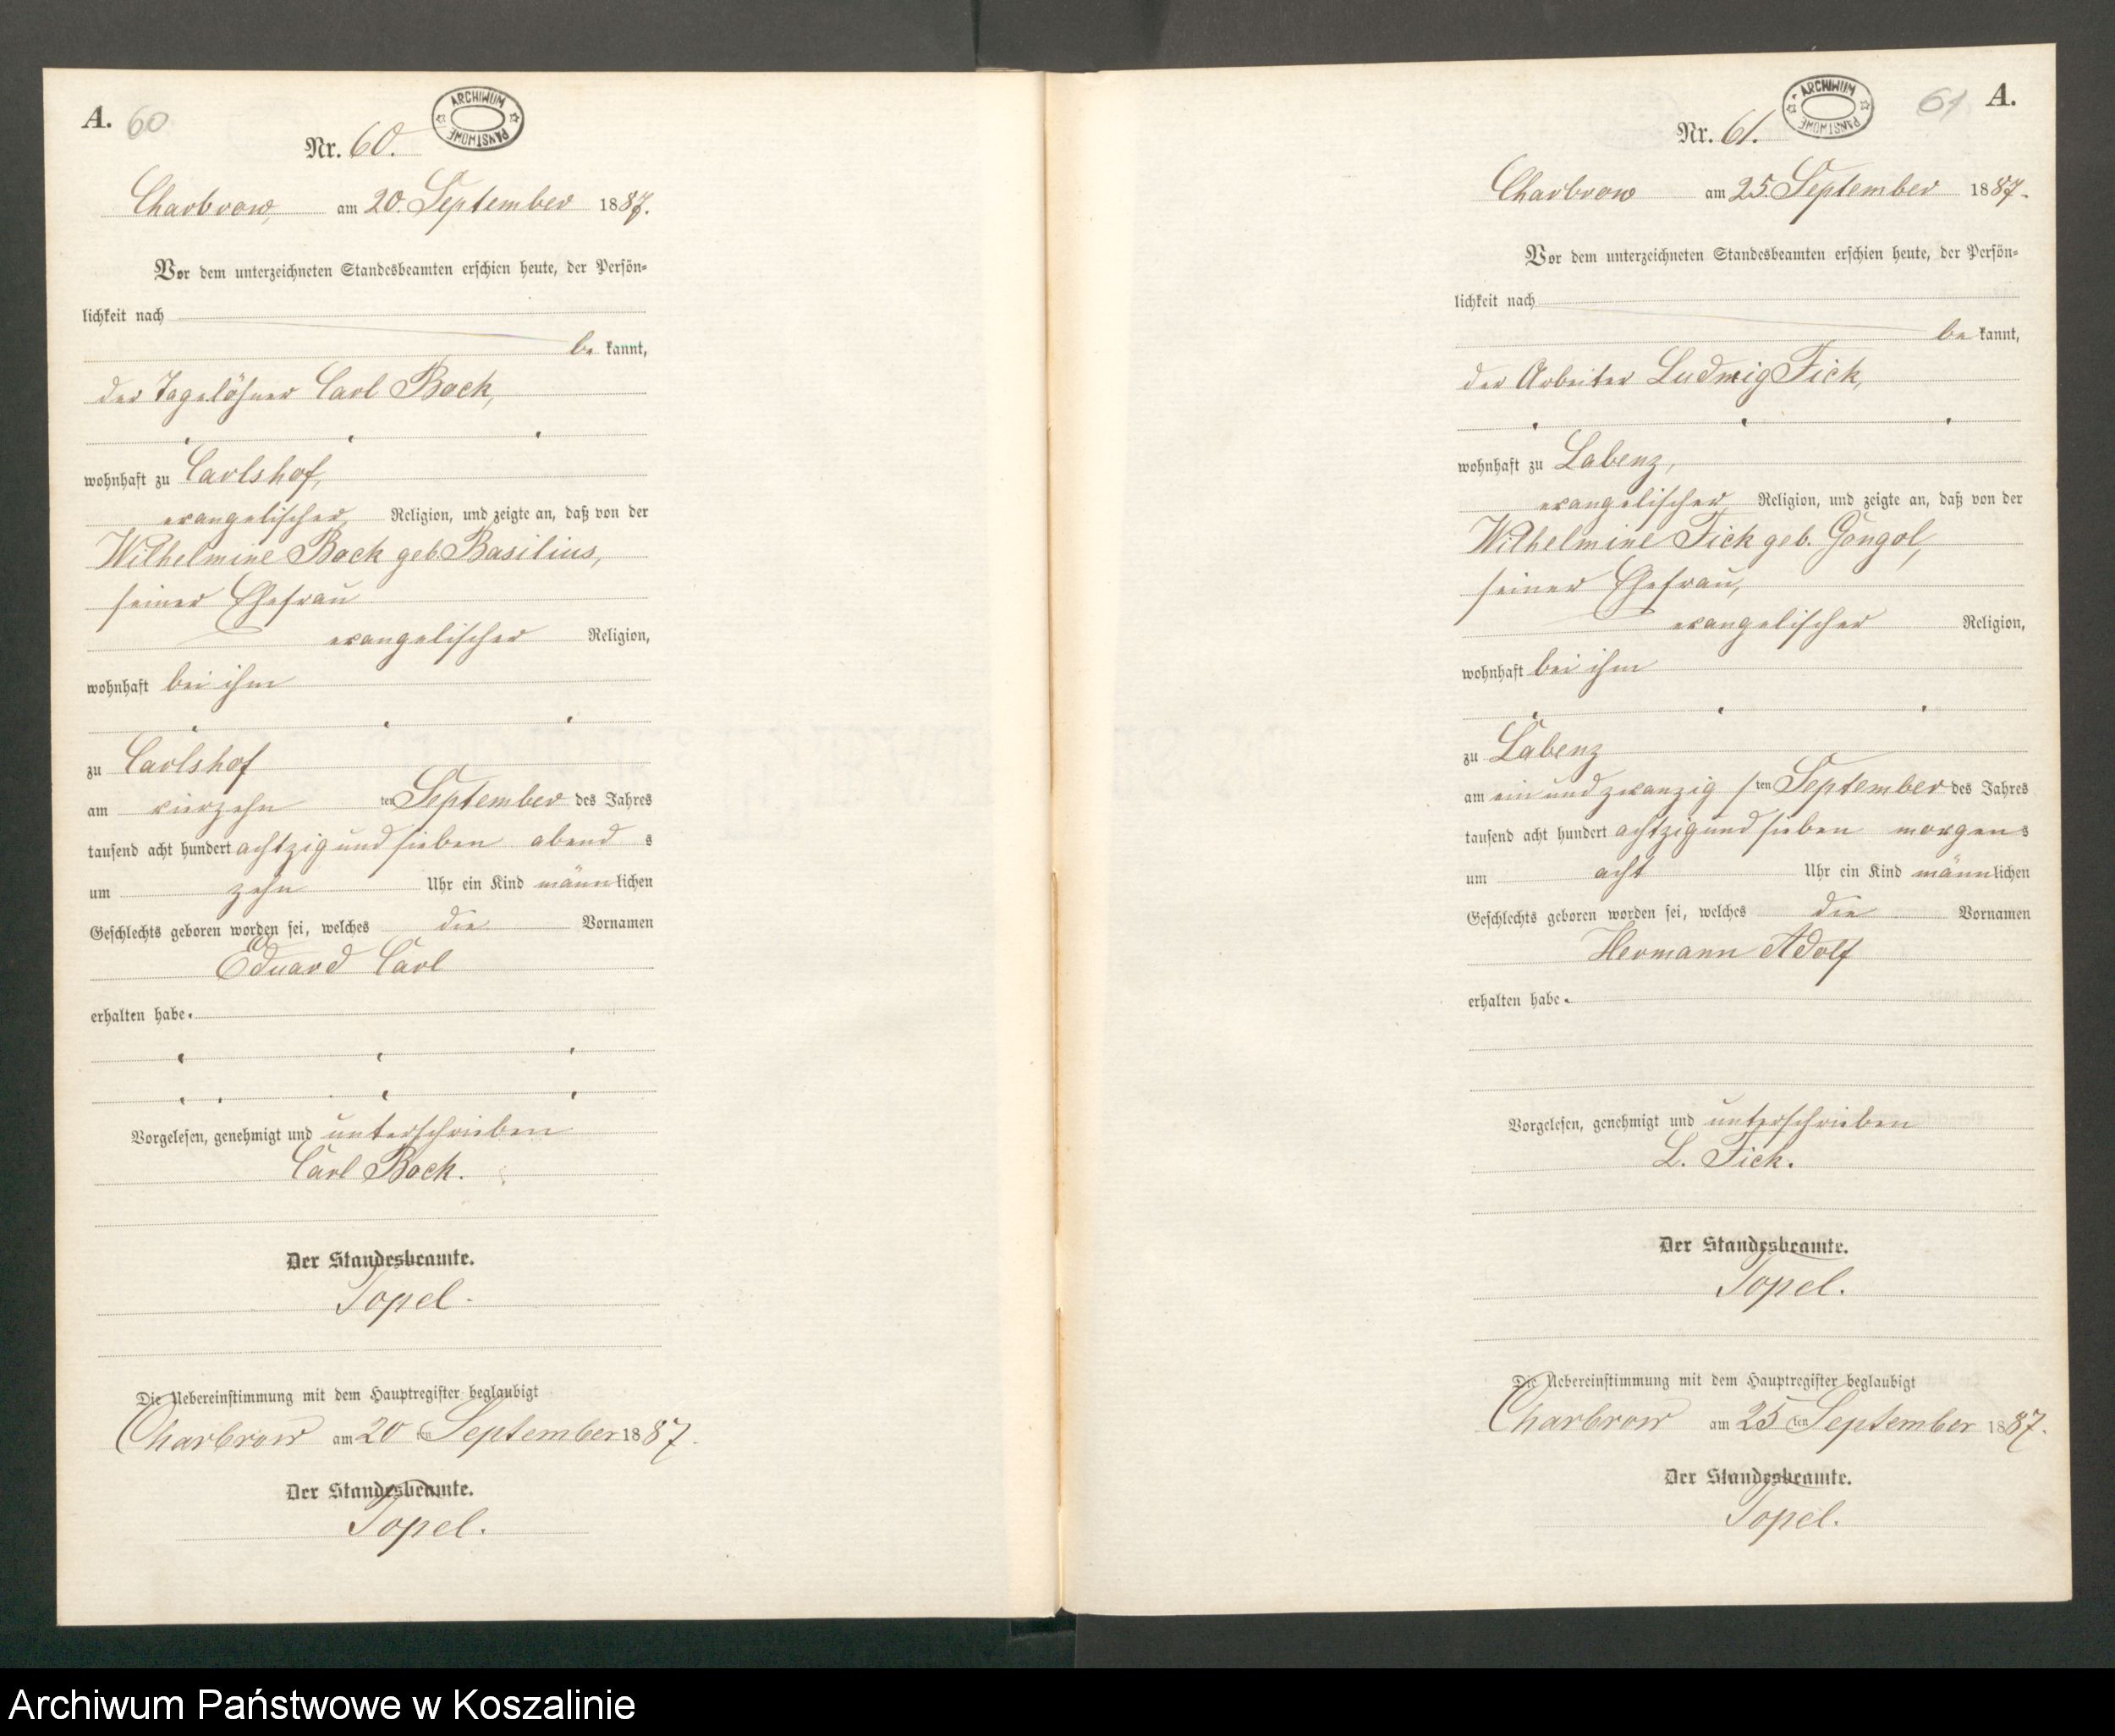 A. 60
ARCHIWUM PAŃSTWOWE
Nr. 60.
Charbrow, am 20. September 1887.
Vor dem unterzeichneten Standesbeamten erschien heute, der Persön-
lichkeit nach
be kannt,
der Tagelöhner Carl Bock,
wohnhaft zu Carlshof,
evangelischer Religion, und zeigte an, daß von der
Wilhelmine Bock geb. Basilius,
seiner Ehefrau
evangelischer Religion,
wohnhaft bei ihm
zu Carlshof
am vierzehn ten September des Jahres
tausend acht hundert achtzig und sieben abend s
um zehn Uhr ein Kind männlichen
Geschlechts geboren worden sei, welches die Vornamen
Eduard Carl
erhalten habe.
Vorgelesen, genehmigt und unterschrieben
Carl Bock.
Der Standesbeamte.
Topel.
Die Uebereinstimmung mit dem Hauptregister beglaubigt
Charbrow am 20 ten September 1887.
Der Standesbeamte.
Topel.
61 A.
ARCHIWUM PAŃSTWOWE
Nr. 61.
Charbrow am 25. September 1887.
Vor dem unterzeichneten Standesbeamten erschien heute, der Persön-
lichkeit nach
be kannt,
der Arbeiter Ludwig Fick,
wohnhaft zu Labenz,
evangelischer Religion, und zeigte an, daß von der
Wilhelmine Fick geb. Gongol,
seiner Ehefrau,
evangelischer Religion,
wohnhaft bei ihm
zu Labenz
am ein und zwanzig sten September des Jahres
tausend acht hundert achtzig und sieben morgens
um acht Uhr ein Kind männlichen
Geschlechts geboren worden sei, welches die Vornamen
Hermann Adolf
erhalten habe.
Vorgelesen, genehmigt und unterschrieben
L. Fick.
Der Standesbeamte.
Topel.
Die Uebereinstimmung mit dem Hauptregister beglaubigt
Charbrow am 25 ten September 1887.
Der Standesbeamte.
Topel.
Archiwum Państwowe w Koszalinie